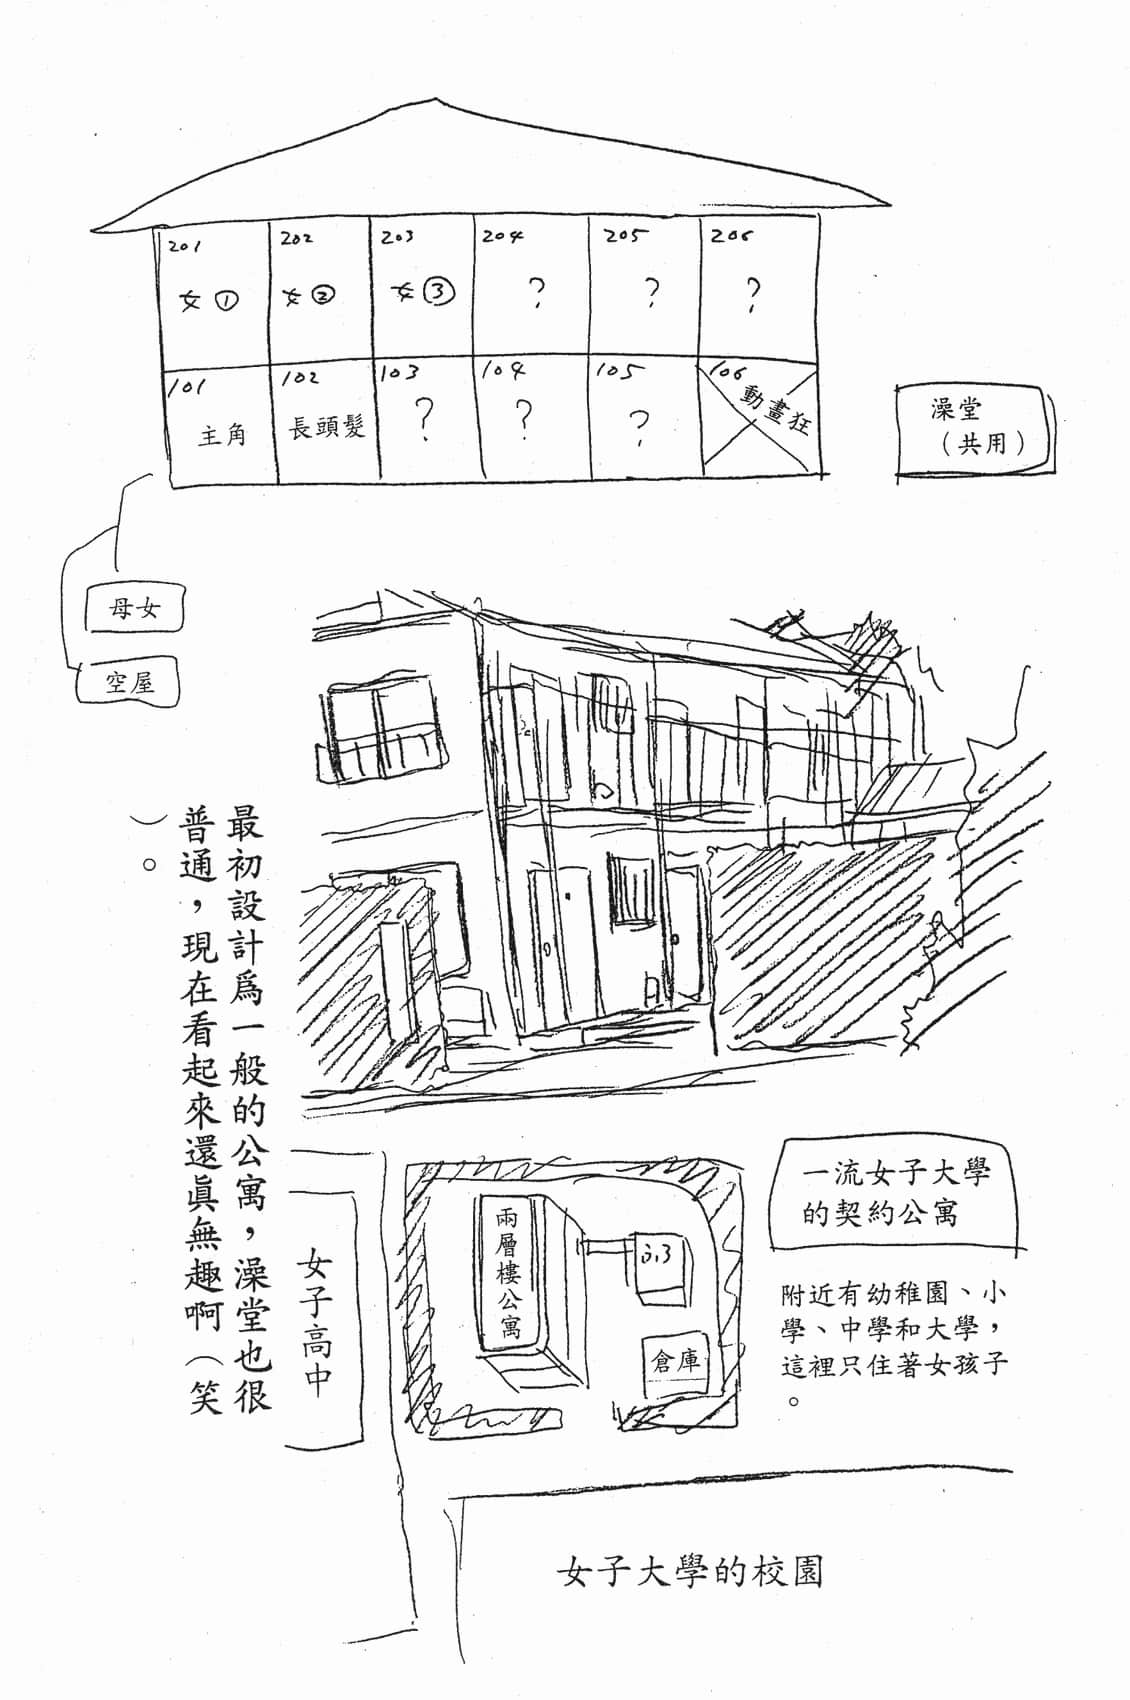 201
女①
202
女②
203
女③
204
?
205
?
206
?
101
主角
102
長頭髮
103
?
104
?
105
?
106
動畫狂
澡堂
（共用）
母女
空屋
最初設計爲一般的公寓，澡堂也很
普通，現在看起來還眞無趣啊（笑
）。
一流女子大學
的契約公寓
附近有幼稚園、小
學、中學和大學，
這裡只住著女孩子
。
兩層樓公寓
ふろ
倉庫
女子高中
女子大學的校園